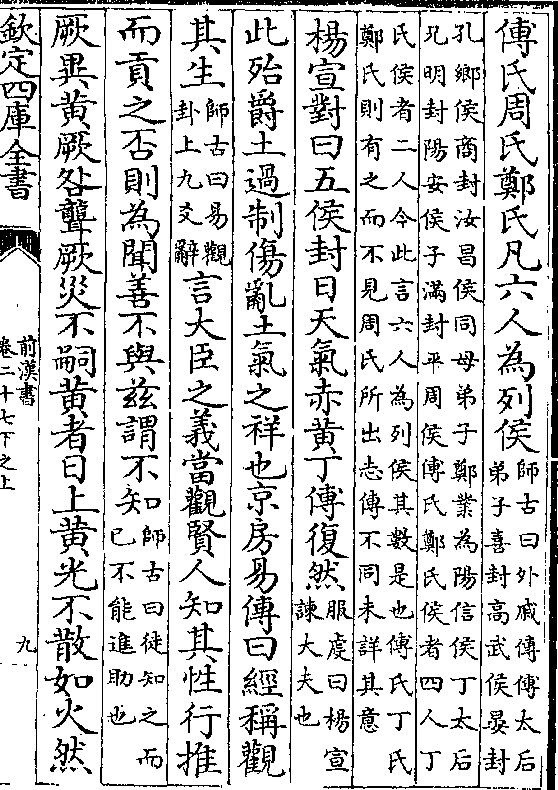 傅氏周氏鄭氏凡六人為列侯師古曰外戚傳傅太后
弟子喜封高武侯晏封
孔鄉侯商封汝昌侯同母弟子鄭業為陽信侯丁太后
兄明封陽安侯子滿封平周侯傅氏鄭氏侯者四人丁
氏侯者二人今此言六人為列侯其數是也傅氏丁氏
鄭氏則有之而不見周氏所出志傳不同未詳其意
楊宣對曰五侯封日天氣赤黃丁傅復然服虔曰楊宣
諫大夫也
此殆爵土過制傷亂土氣之祥也京房易傳曰經稱觀
其生師古曰易觀
卦上九爻辭言大臣之義當觀賢人知其性行推
而貢之否則為聞善不與茲謂不知師古曰徒知之而
已不能進助也
厥異黃厥咎聾厥災不嗣黃者日上黃光不散如火然
欽定四庫全書
前漢書
卷二十七下之上
九